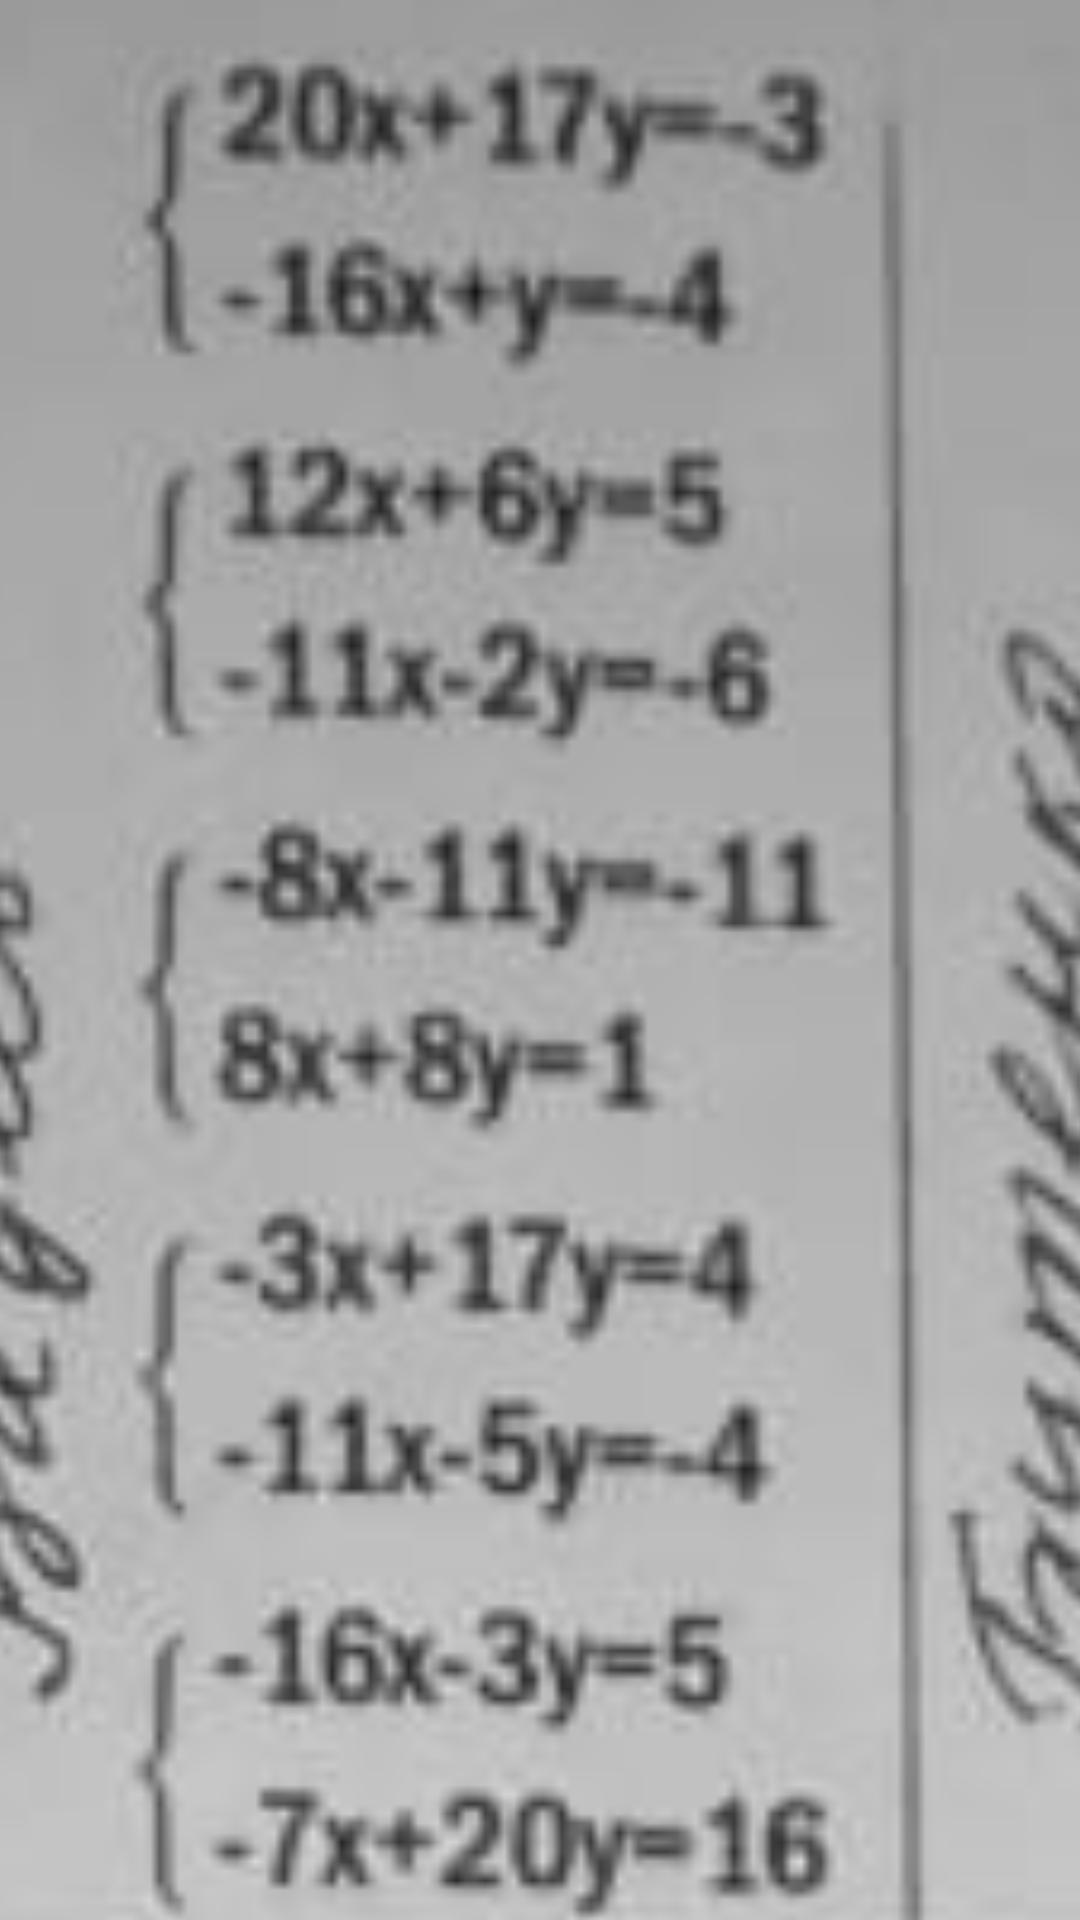 20x+17y=-3
-16x+y=-4
12x+6y=5
-11x-2y=-6
-8x-11y=-11
8x+8y=1
-3x+17y=4
-11x-5y=-4
-16x-3y=5
-7x+20y=16